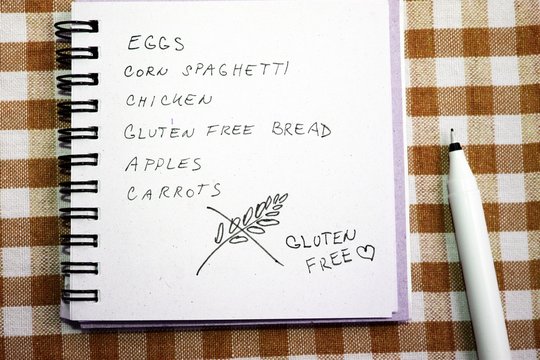 EGGS
CORN SPAGHETTI
CHICKEN
GLUTEN FREE BREAD
APPLES
CARROTS
GLUTEN
FREE